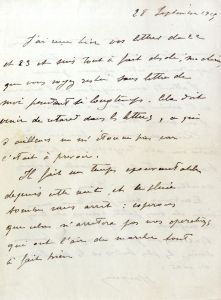 28 Septembre 1915
J'ai reçu hier vos lettres de 22
et 23 et suis tout à fait désolé, ma chère
que vous soyez restée sans lettre de
moi pendant si longtemps. Cela doit
venir de retard dans les lettres, ce qui
d'ailleurs ne m'étonne pas car
c'était à prévoir.
Il fait un temps épouvantable
depuis cette nuit et la pluie
tombe sans arrêt : espérons
que cela n'arrêtera pas nos opérations
qui ont l'air de marcher tout
à fait bien